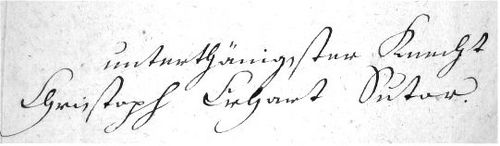 unterthänigster Knecht
Christoph Erhart Sutor.